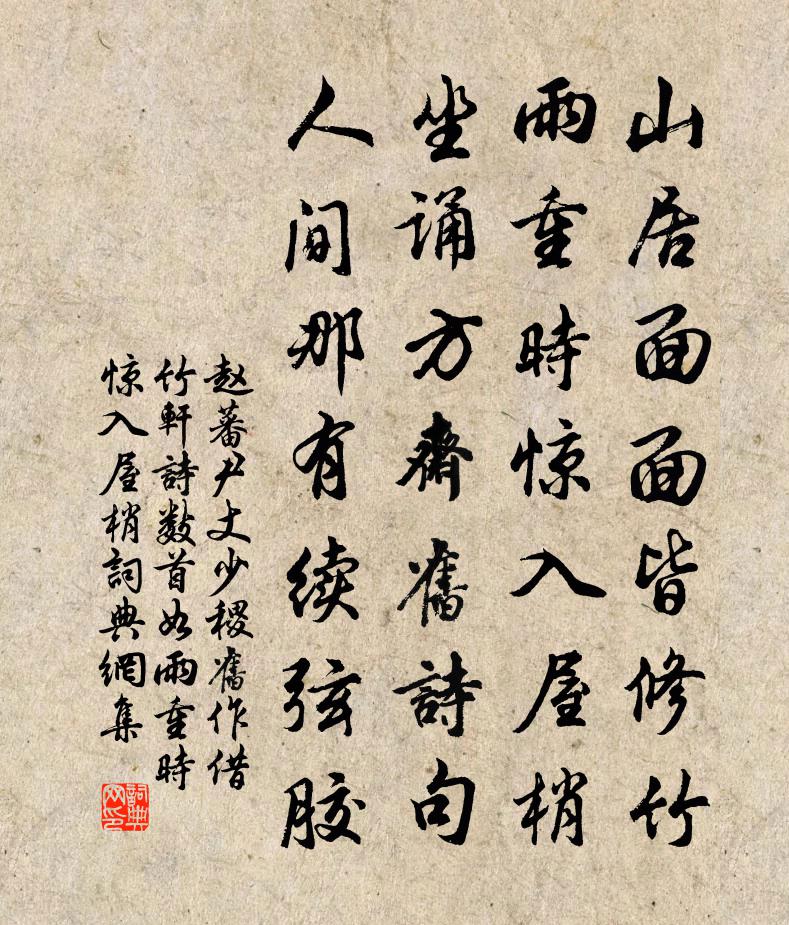 山居面面皆修竹
雨重時惊入屋梢
坐诵方齋舊詩句
人间那有续弦胶
赵蕃尹丈少稷舊作借
竹軒詩数首如雨重時
惊入屋梢詞典網集
詞典
网印